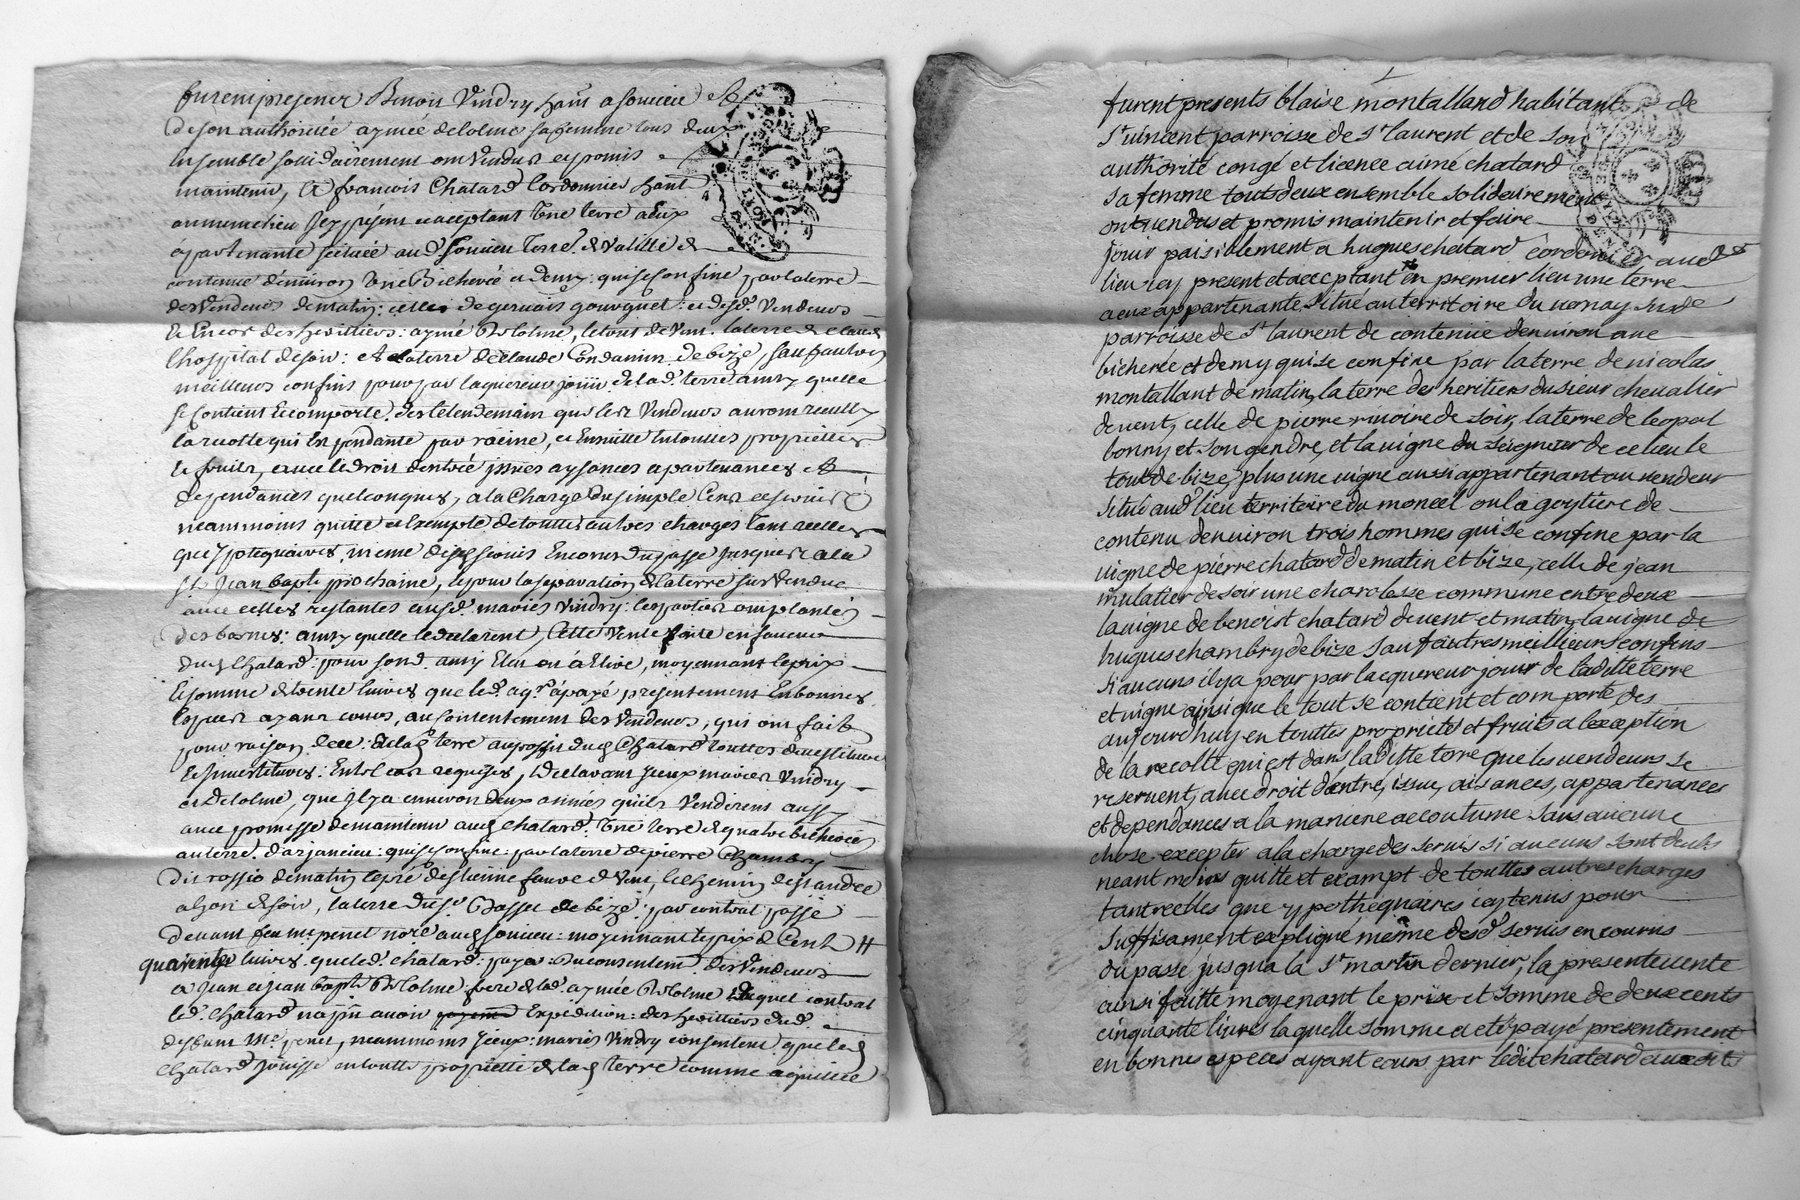 furent presents Benoit Vindry hant a Soucieu et
de son authoritée aymée delolme sa femme tous deux
ensemble solidairement ont vendus et promis
maintenir, a françois Chatard Cordonnier hant
au meme lieu icy présent et acceptant une terre a eux
apartenante scituée aud. Soucieu terre. de
contenue d'environ une Bicherée et demy: qui se confine par la terre
des vendeurs de matin: celles de gervais gourguet: et desd. vendeurs
et encor des heritiers: aymé Delolme, le tout de vent. la terre de claude
lhospital de soir: et la terre de claude Condamin de bize, sauf autres
meilleurs confins pour par laquereur jouir de lad. terre ainsy quelle
se contient et comporte. des le lendemain que les vendeurs auront recully
la recolte qui est pendante par racine, et ensuitte en touttes proprietées
et fruits, avec le droit dentrée issues aysances apartenances et
dependances quelconques, a la charge du simple Cens et servis
neammoins quitte et Exempte de touttes autres charges tant reelles
que ypotequaires, meme desd servis Encourus du passé jusques a la
St Jean bapte prochaine, et pour la separation de la terre sus vendue
avec celles restantes ausd. mariés vindry: les parties ont plantés
des bornes: ainsy quelle le declarent, Cette vente faite en faveur
dud Chatard: pour son amy Elu ou a Elire, moyennant le prix
et somme de trente livres que led. aqr. a payé presentement En bonnes
especes ayant cours, au contentement des vendeurs, qui ont fait
pour raison dece: et lad terre au proffit dud Chatard touttes devestitures
et investitures: En tel cas requises, et declarant jceux mariés Vindry
et delolme, que jl y a environ deux années qu'ils vendirent aussy
avec promesse de maintenir aud chatard: une terre de quatre bicherées
au terre. d'arjancieu: qui se confine: par la terre de pierre Chambry
dit rossio de matin le pré destienne faure de vent, le chemin de st andré
a lyon de soir, la terre du sr. Basset de bize: par contrat passé
devant feu me penet nore aud Soucieu: moyennant le prix de Cent
quarente livres. que led. chatard: paya: Du consentemt. des vendeurs
a Jean et jean bapte Delolme frere de lad. aymée Delolme duquel contrat
led. Chatard na pû avoir Expedition: des heritiers dud.
deffunt Me. penet, neammoins jceux: mariés vindry consentent que led
Chatard jouisse en toutte proprieté de lad terre comme aquittée
furent presents blaise montalland habitant de
st vincent parroisse de st laurent et de son
authorité congé et licence aimé chatard
sa femme touts deux ensemble solidairement
ont vendus et promis maintenir et faire
jouir paisiblement a hugues chatard cordonnier aud
lieu icy present et acceptant en premier lieu une terre
a eux appartenante situé au territoire du vernay susde
parroisse de st laurent de contenue denviron une
bicherée et demy qui se confine par la terre de nicolas
montalland de matin, la terre des heritiers du sieur chevalier
de vent, celle de pierre rivoire de soir, la terre de leopol
bonny et son gendre, et la vigne du seigneur de ce lieu le
tout de bize, plus une vigne aussi appartenant au vendeur
situé aud lieu territoire du moncel ou la goytiere de
contenu denviron trois hommes qui se confine par la
vigne de pierre chatard de matin et bize, celle de jean
mulatier de soir une charclasse commune entre deux
la vigne de benoist chatard de vent et matin, la vigne de
hugues chambry de bize sauf autres meilleurs confins
si aucuns il y a pour par lacquereur jouir de laditte terre
et vigne ainsi que le tout se contient et comporte des
aujourdhuy en touttes proprietés et fruits a lexception
de la recolte qui est dans laditte terre que les vendeurs se
reservent, avec droit dentré, issue, aisances, appartenances
et dependances a la maniere accoutumé sans aucune
chose excepter a la charge des servis si aucuns sont deubs
neant moins quitte et exampt de touttes autres charges
tant reelles que ypothequaires icy tenus pour
suffisament expliqué même desd servis encourus
du passé jusqua la st martin dernier, la presente vente
ainsi faitte moyenant le prix et somme de deux cents
cinquante livres laquelle somme a eté payé presentement
en bonnes especes ayant cours par ledit chatard auxdits